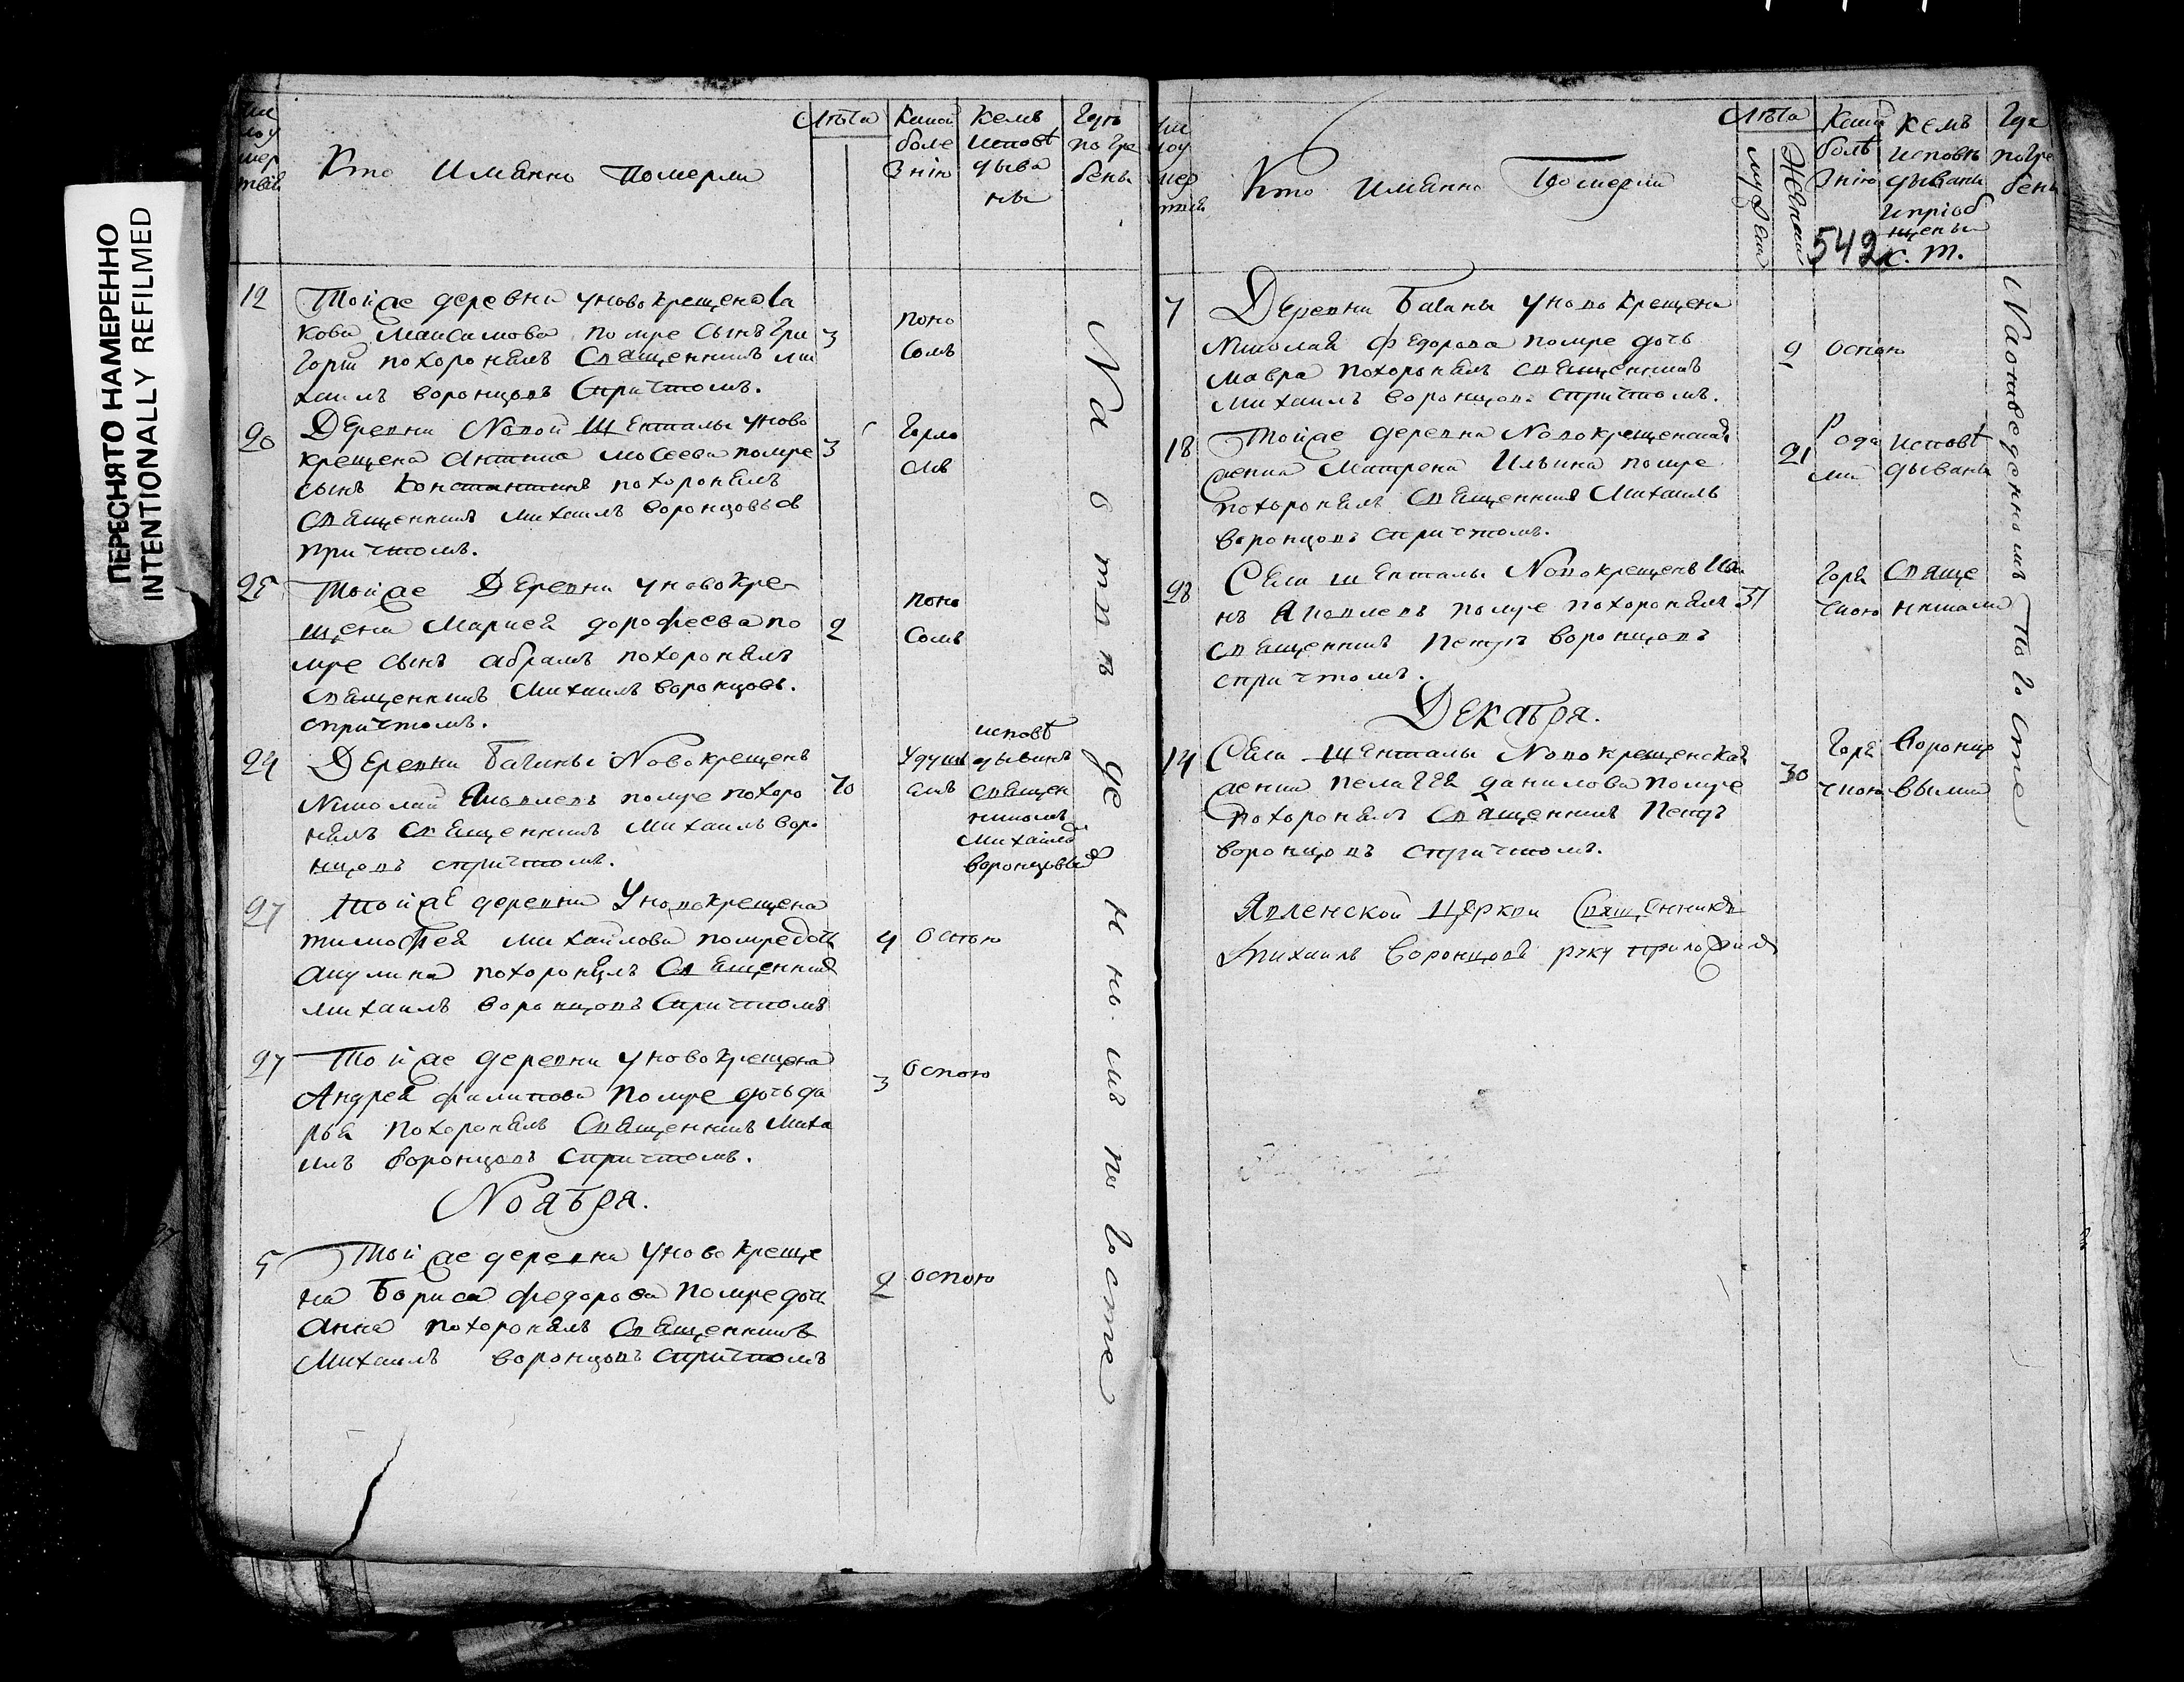 ПЕРЕСНЯТО НАМЕРЕННО
INTENTIONALLY REFILMED
Кто Имянно Померли
Лѣта
Какой
боле
знію
Кемъ
исповѣ
дыва
ны
Гдѣ
погре
бены
12
Тойже деревни уновокрещена Іа
кова Максимова помре сынъ Гри
горій похоронялъ Священникъ Ми
хаилъ Воронцовъ Спричтомъ.
3
поно
сомъ
20
Деревни Новой Шенталы уново
крещена Антипа Мосеева помре
сынъ Константинъ похоронялъ
Священникъ Михаилъ Воронцовъ съ
причтомъ.
3
Горло
мъ
25
Тойже Деревни уновокре
щена Маркея дорофеева по
мре сынъ абрамъ похоронялъ
Священникъ Михаилъ Воронцовъ.
спричтомъ.
2
поно
сомъ
24
Деревни Баганы Новокрещенъ
Николай Яковлевъ помре похоро
нялъ Священникъ Михаилъ Воро
нцовъ спричтомъ.
70
Удуш
емъ
исповѣ
дыванъ
священ
никомъ
Михайло
Воронцовымъ
27
Тойже деревни Уновокрещена
тимофея Михайлова помре дочь
акулина похоронялъ Священникъ
Михаилъ Воронцовъ Спричтомъ
4
Оспою
27
Тойже деревни уновокрещена
Андрея филипова помре дочь да
рья похоронялъ Священникъ Миха
илъ Воронцовъ Спричтомъ.
3
Оспою
Ноября.
5
Тойже деревни уновокреще
на Бориса федорова помре дочь
Анна похоронялъ Священникъ
Михаилъ Воронцовъ Спричтомъ
2
оспою
На отве
денномъ погосте
Кто Имянно Померли
Лѣта
мужеска
Женска
Какой
болѣ
знію
Кемъ
исповѣ
дываны
и пріоб
щены
С. Т.
Где
погре
бены
542
7
Деревни Баганы уновокрещена
Николая Федорова помре дочь
мавра похоронялъ священникъ
Михаилъ Воронцовъ спричтомъ.
2
оспою
18
Тойже деревни Новокрещенская
женка Матрена Ильина помре
похоронялъ Священникъ Михаилъ
Воронцовъ спричтомъ.
21
Рода
ми
исповѣ
дывана
28
Села шенталы Новокрещенъ Ива
нъ Яковлевъ помре похоронялъ
священникъ Петръ Воронцовъ
спричтомъ.
51
Горя
чкою
Свяще
никами
Декабря.
14
Села Шенталы Новокрещенская
женка пелагея данилова помре
похоронялъ Священникъ Петръ
Воронцовъ спричтомъ.
30
Горя
чкою
Воронцо
вымъ
На отведенномъ погосте
Явленской Церкви Священникъ
Михаилъ Воронцовъ руку приложилъ